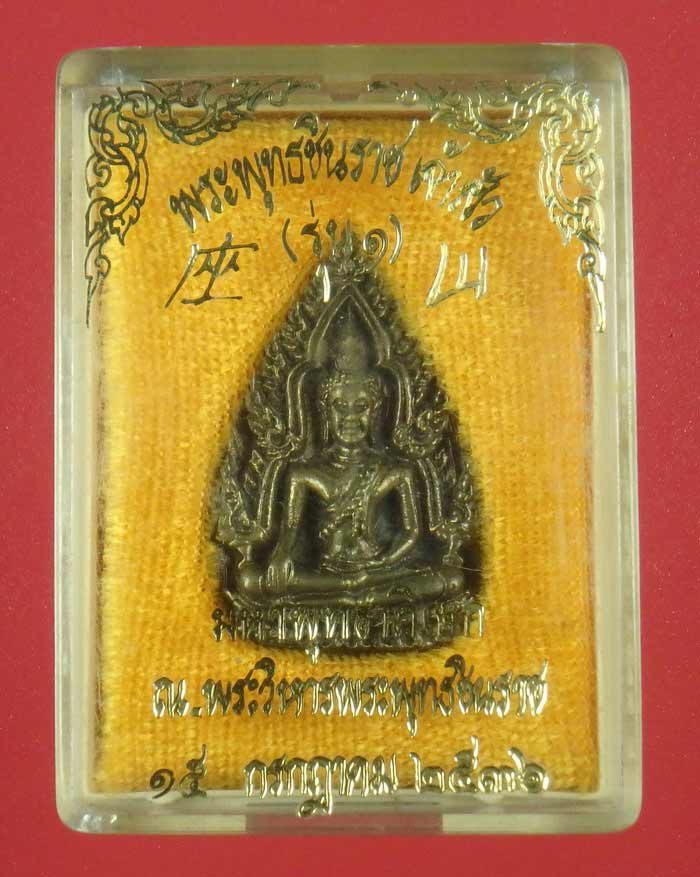 พระพุทธชินราช เจ้าสัว
(รุ่น ๑)
มหาพุทธาภิเษก
ณ.พระวิหารพระพุทธชินราช
๑๕ กรกฎาคม ๒๕๓๖